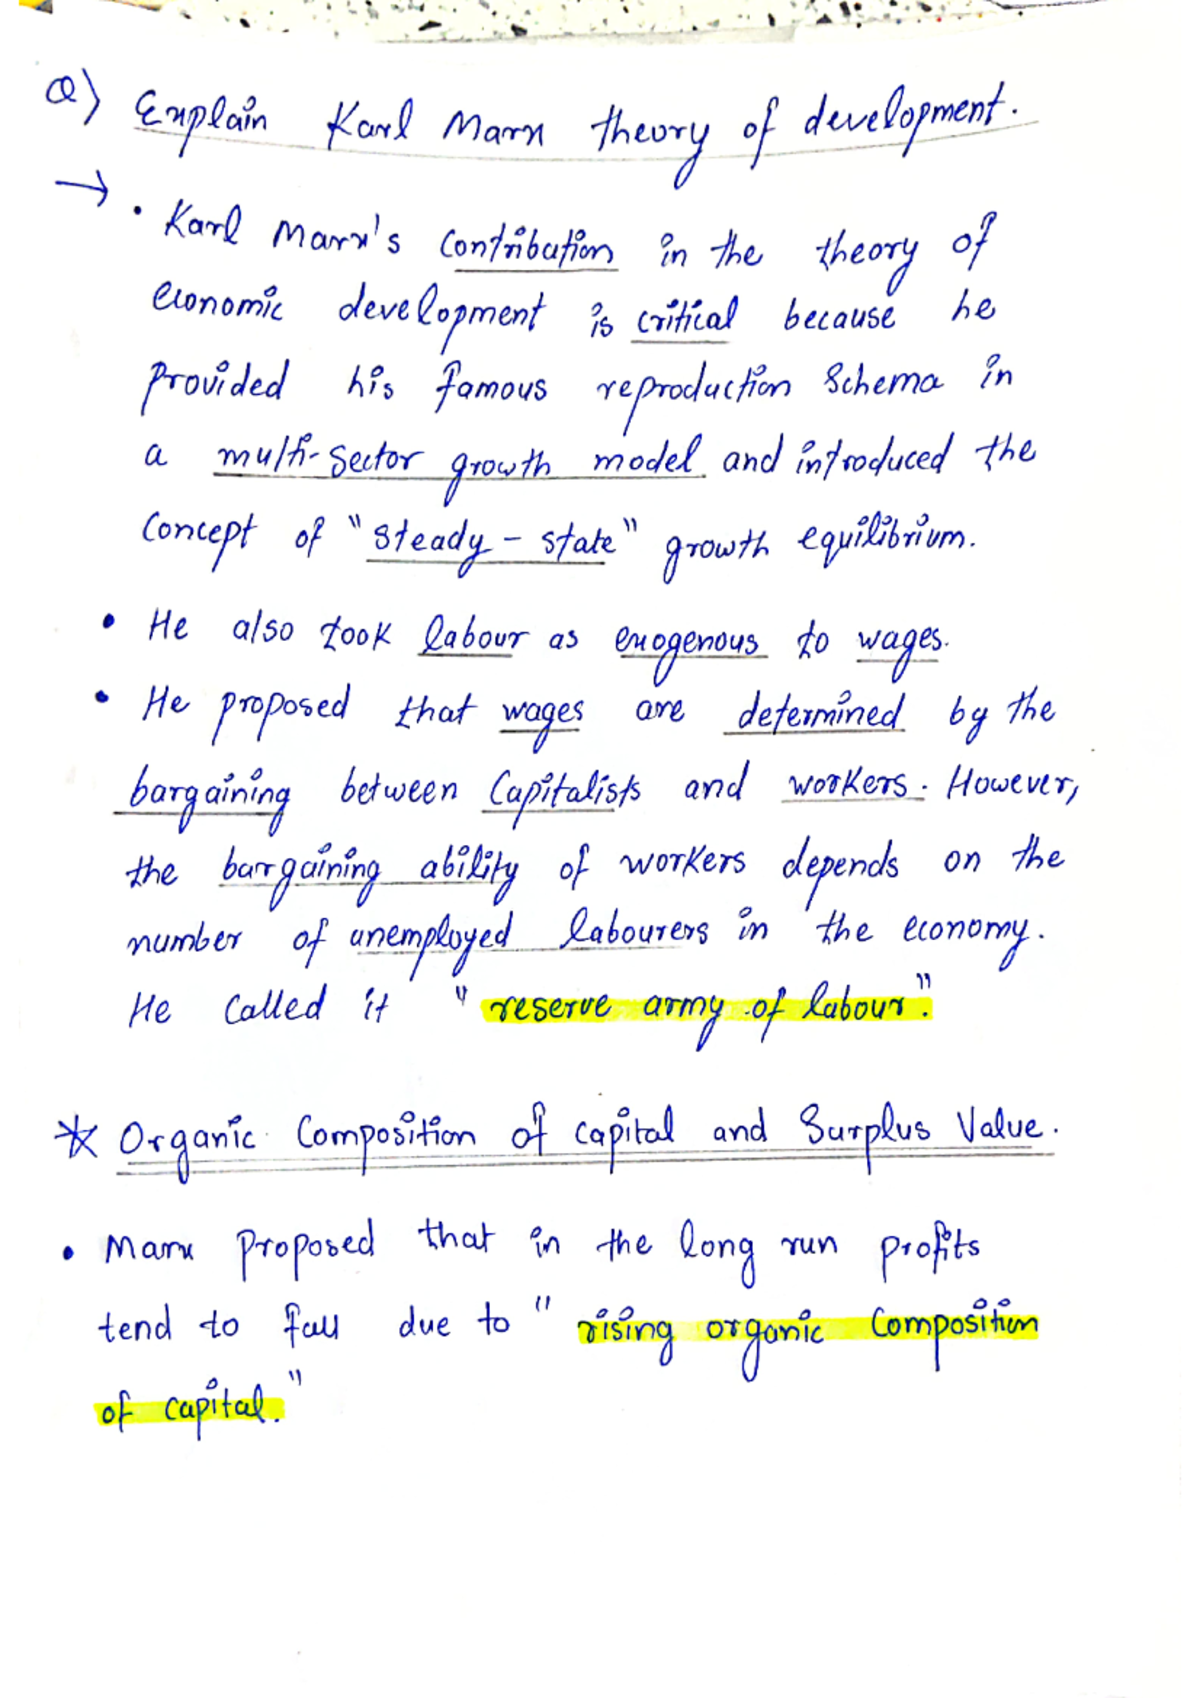 Q) Explain Karl Marx theory of development.
→ • Karl Marx's contribution in the theory of
economic development is critical because he
provided his famous reproduction schema in
a multi-sector growth model and introduced the
concept of "steady-state" growth equilibrium.
• He also took labour as exogenous to wages.
• He proposed that wages are determined by the
bargaining between capitalists and workers. However,
the bargaining ability of workers depends on the
number of unemployed labourers in the economy.
He called it "reserve army of labour."
* Organic Composition of capital and Surplus Value.
• Marx proposed that in the long run profits
tend to fall due to "rising organic composition
of capital."